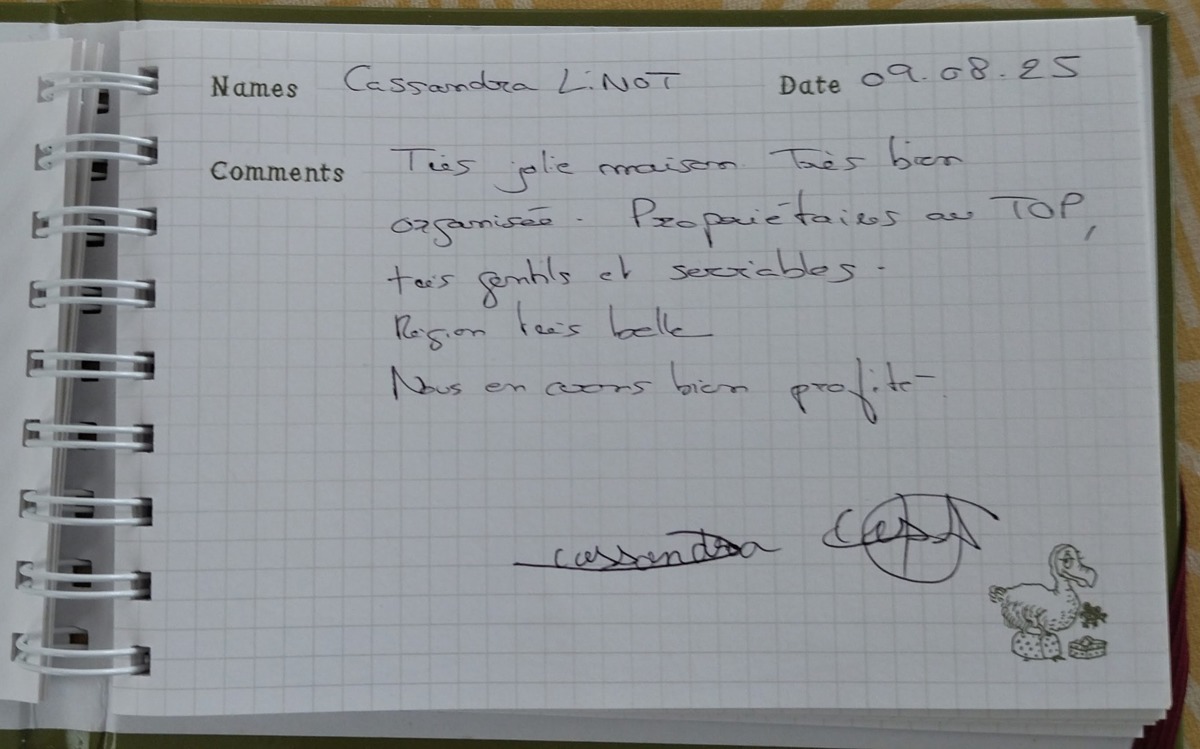 Names Cassandra LiNOT Date 09.08.25
Comments Très jolie maison. Très bien
organisée. Propriétaires au TOP,
très gentils et serviables.
Région très belle
Nous en avons bien profité
cassandra